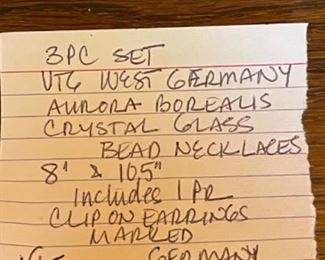 3PC SET
VTG WEST GERMANY
AURORA BOREALIS
CRYSTAL GLASS
BEAD NECKLACES
8" & 16.5"
Includes 1 PR
CLIP ON EARRINGS
MARKED
GERMANY